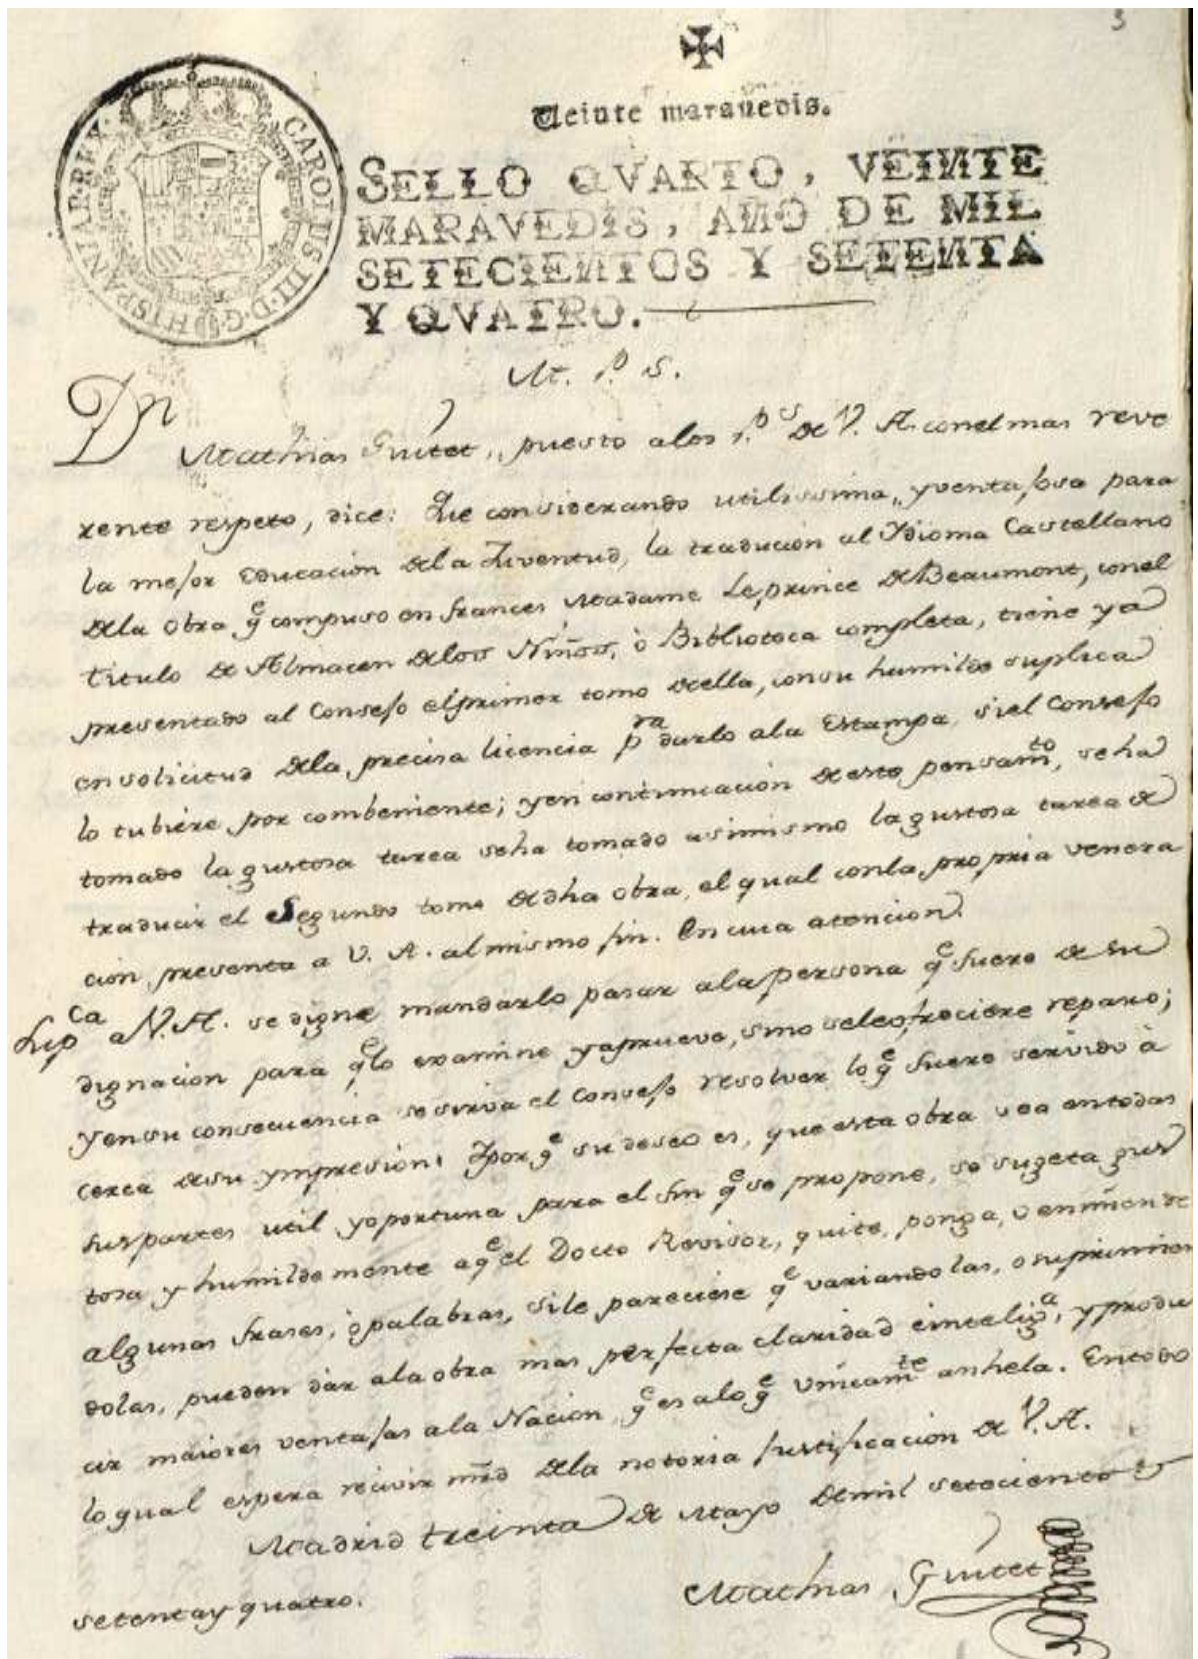 3
Veinte maravedis.
CAROLUS III·D·G·HISPANIAR·REX·
SELLO QVARTO, VEINTE
MARAVEDIS, AÑO DE MIL
SETECIENTOS Y SETENTA
Y QVATRO.
M. P. S.
Dn Mathias Guitet, puesto alos P.s de V. A. conelmas reve
rente respeto, dice: Que considerando utilissima, yventajosa para
la mejor Educacion dela Juventud, la traducion al Ydioma Castellano
dela obra q.e compuso en frances Madame Le prince de Beaumont, conel
titulo de Almacen delos Niños, ò Biblioteca completa, tiene ya
presentado al Consejo elprimer tomo deella, consu humilde suplica
ensolicitud dela precisa licencia p.ra darlo ala Estampa, siel Consejo
lo tubiere por combeniente; yen continuacion deeste pensam.to, seha
tomado la gustosa tarea seha tomado asimismo lagustosa tarea de
traducir el Segundo tomo dedha obra, el qual conla propria venera
cion, presenta a V. A. almismo fin. En cuia atencion.
Sup.ca a V. A. se digne mandarlo pasar ala persona q.e fuere de su
dignacion para q.e lo examine yaprueve, sino sele ofreciere reparo;
yensu consecuencia sesirva el Consejo resolver lo q.e fuere servido à
cerca desu ympresion. Ypor q.e su deseo es, que esta obra sea entodas
sus partes util yoportuna para el fin q.e se propone, se sugeta gus
tosa y humildemente aq.e el Docto Revisor, quite, ponga, o enmiende
algunas frases, ò palabras, sile pareciese q.e variandolas, o suprimien
dolas, pueden dàr ala obra mas perfecta claridad eintelig.a, y produ
cir maiores ventajas ala Nacion, q.e es alo q.e Unicam.te anhela. Entodo
lo qual espera recivir mrd dela notoria justificacion de V. A.
Madrid treinta de Mayo demil setecientos
setentay quatro.
Mathias Guitet